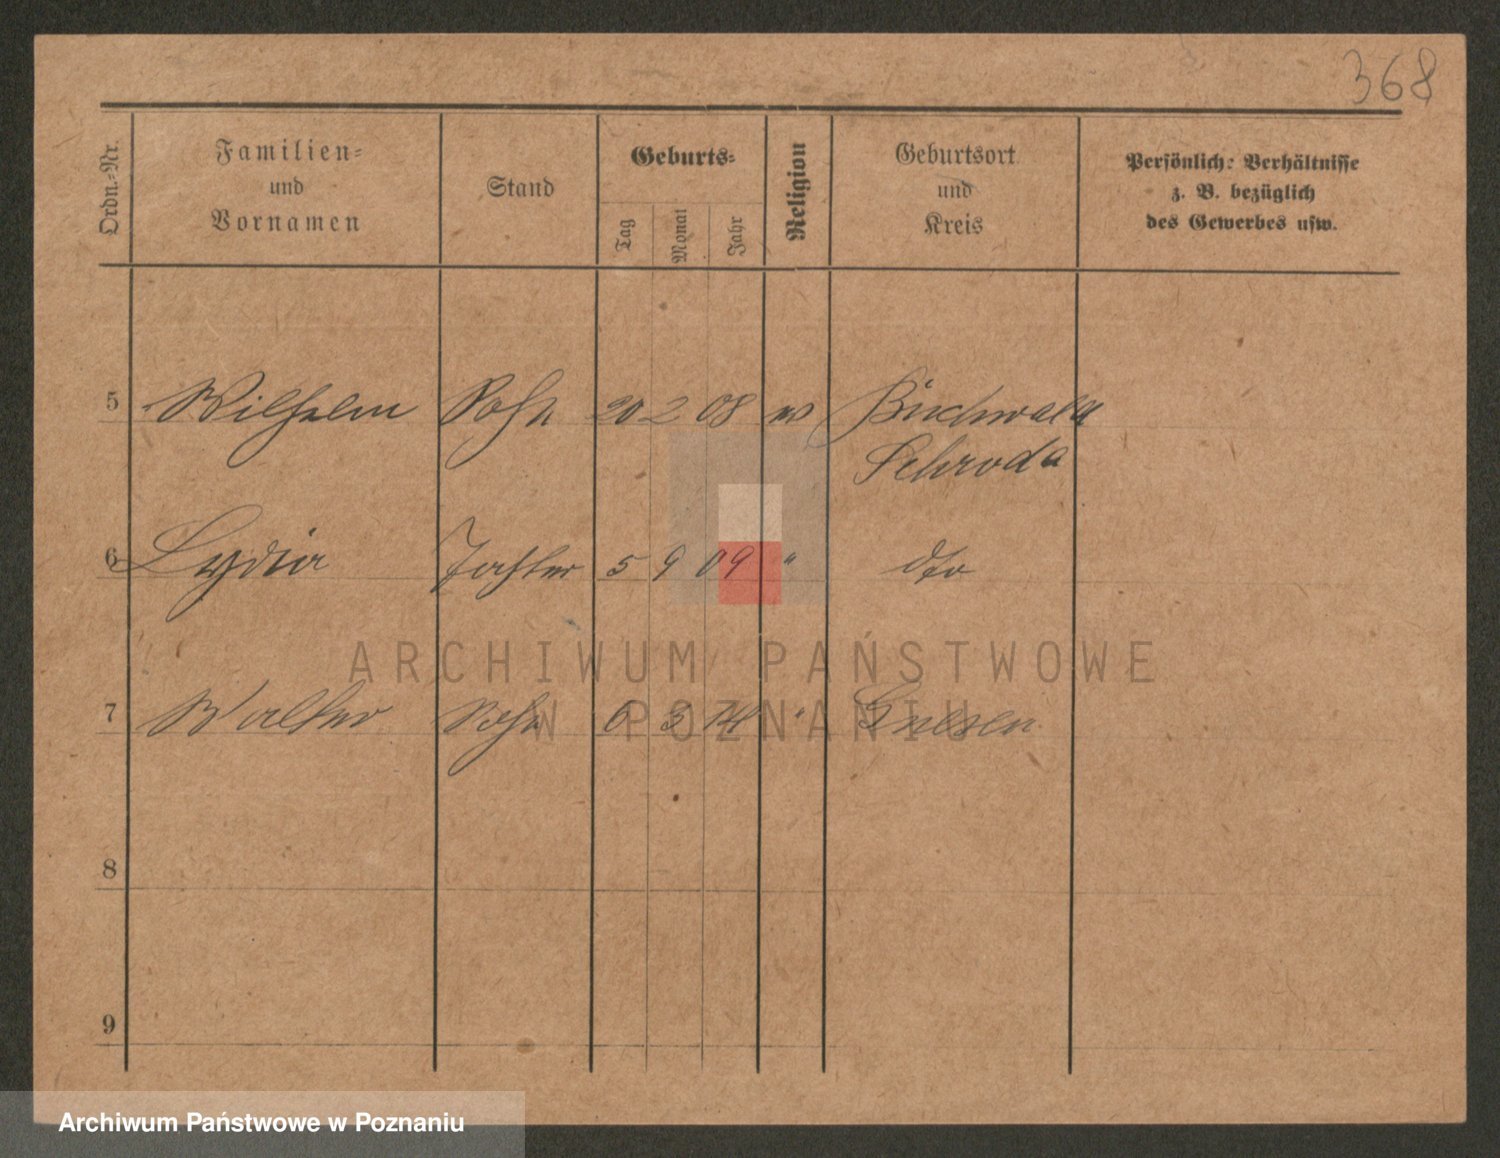 368
Ordn.-Nr.
Familien-
und
Vornamen
Stand
Geburts-
Tag
Monat
Jahr
Religion
Geburtsort
und
Kreis
Persönlich: Verhältnisse
z. B. bezüglich
des Gewerbes usw.
5 Wilhelm Sohn 20 2 08 Buchwald
Schroda
6 Lydia Tochter 5 9 09 " dto
7 Walter Sohn 6 3 14 " Gnesen
8
9
ARCHIWUM PAŃSTWOWE
W POZNANIU
Archiwum Państwowe w Poznaniu